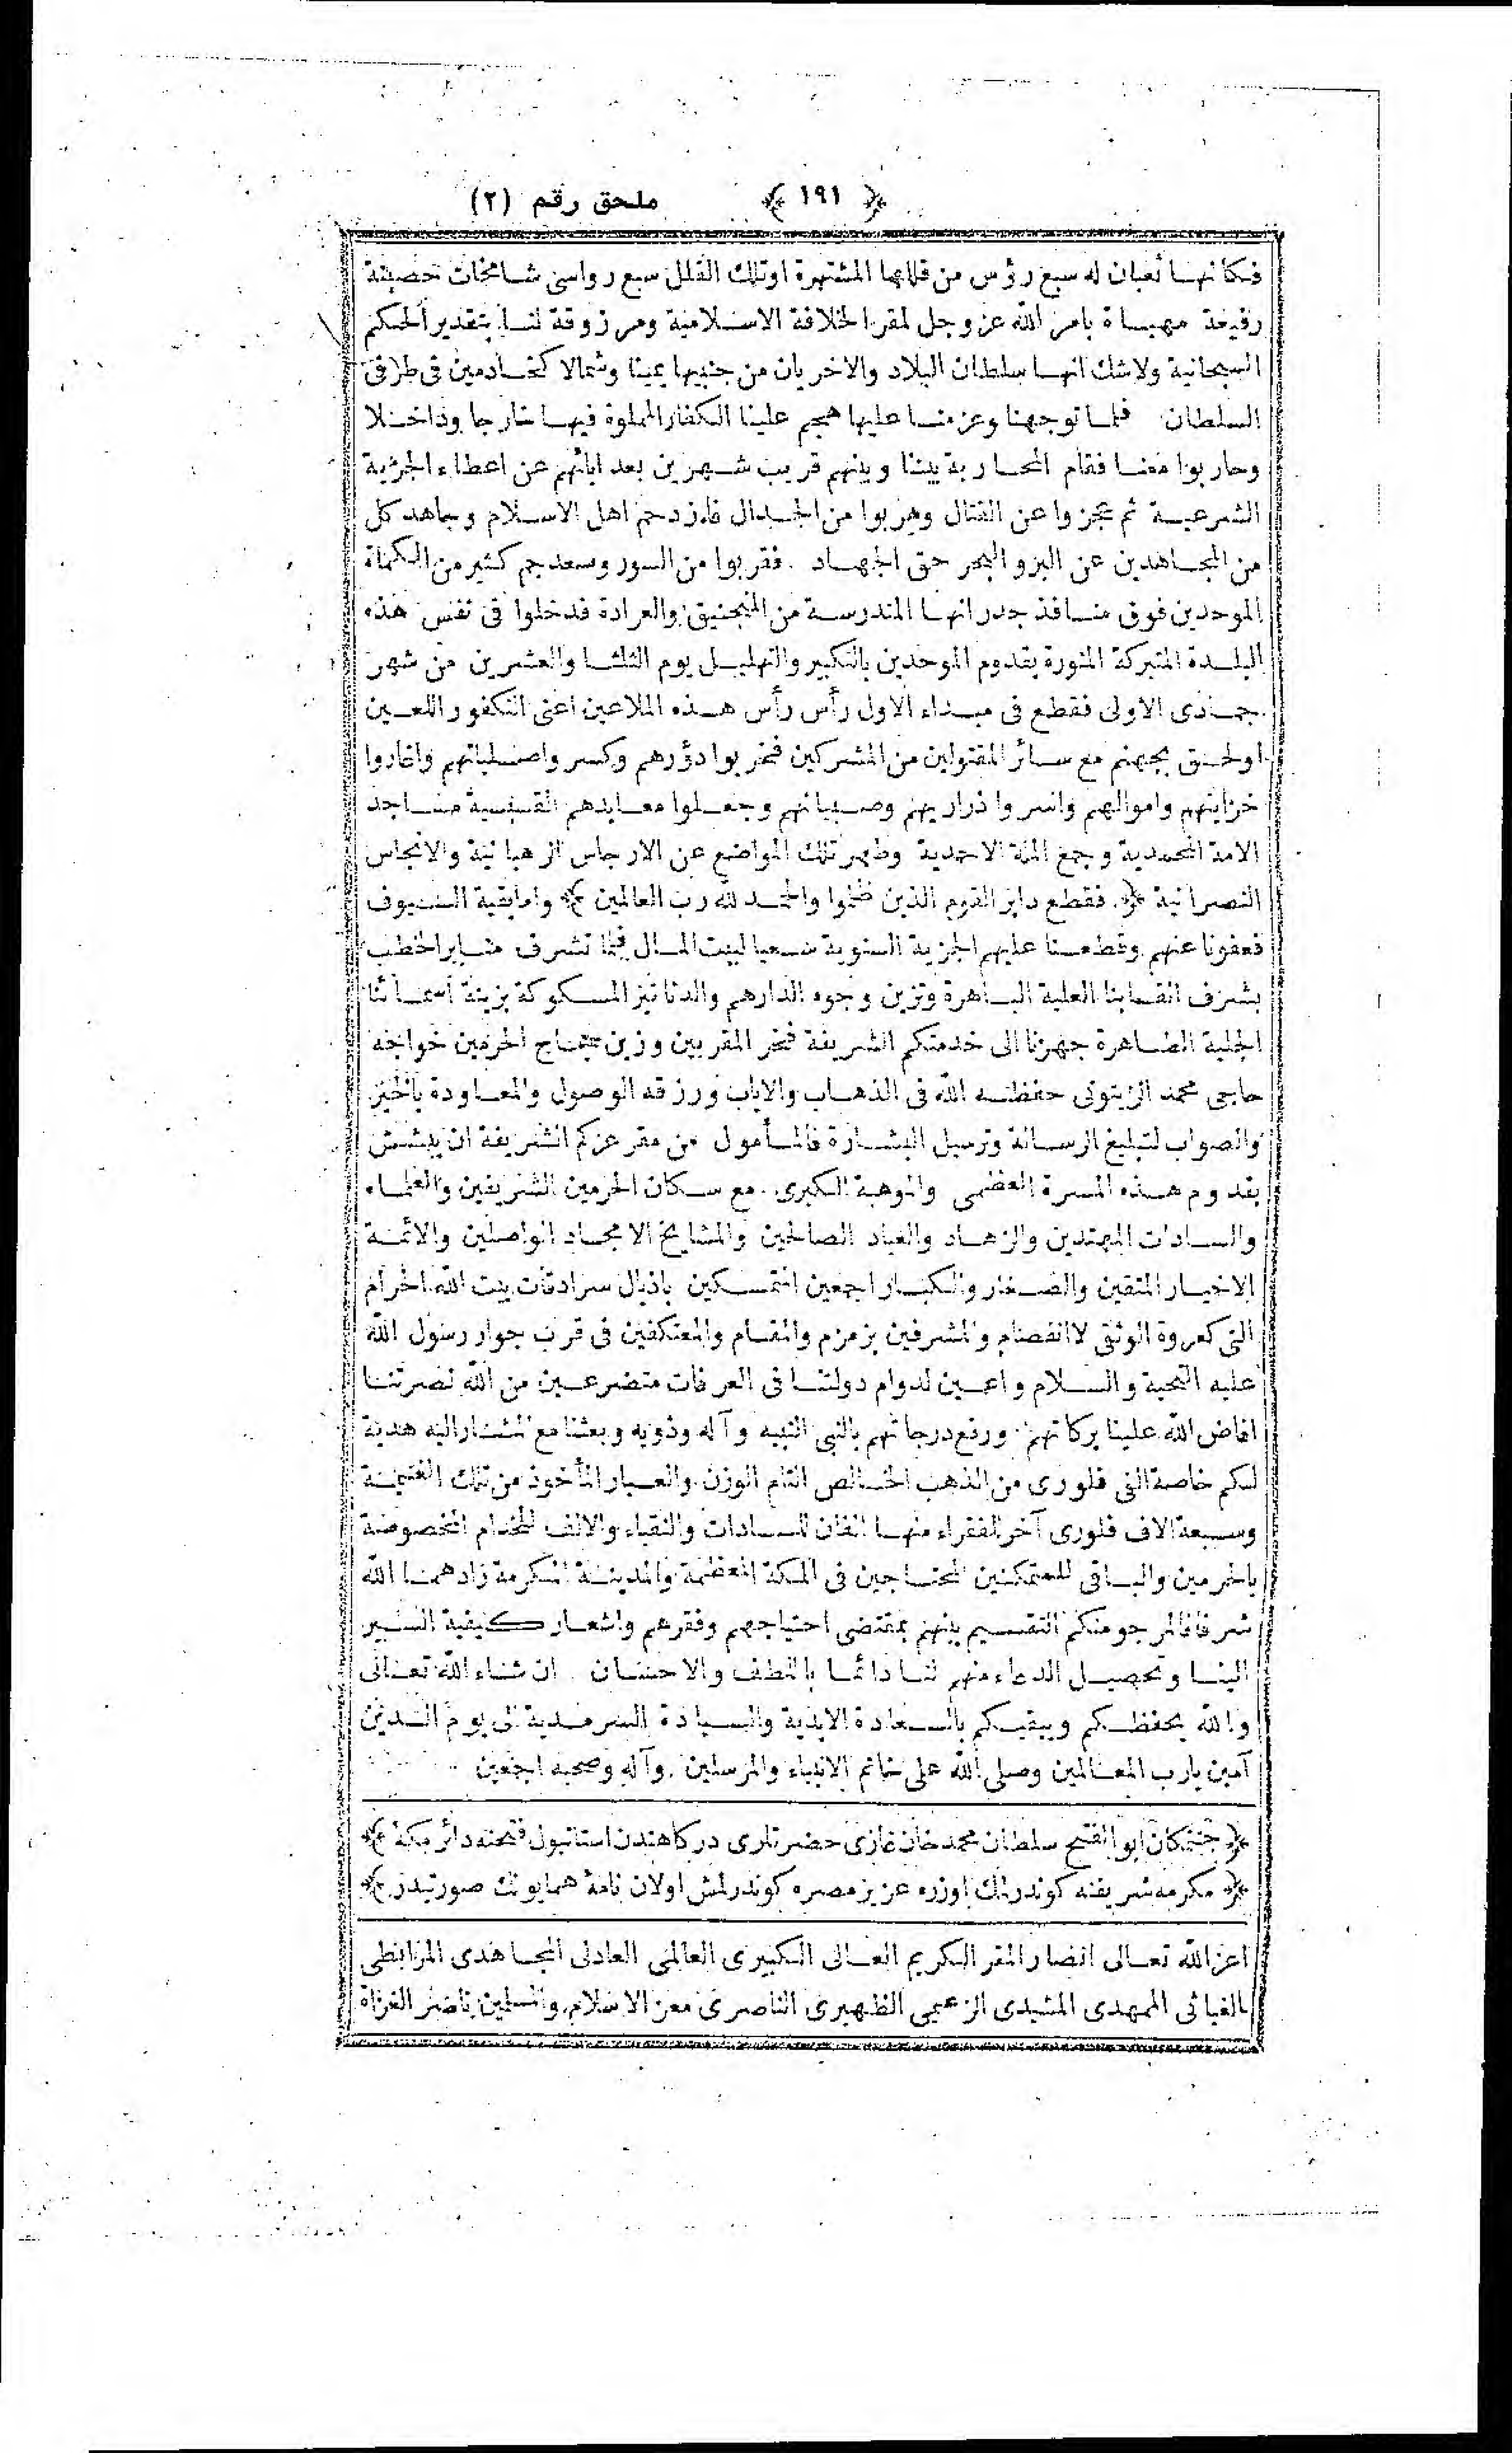 ﴿ ١٩١ ﴾ ملحق رقم (٢)
فكانها ثعبان له سبع رؤس من قلاعها المشتهرة اوتلك القلل سبع رواسى شامخات حصينة
رفيعة مهيـاة بامر الله عز وجل لمقر الخلافة الاسلامية ومرزوقة لنا بتقدير الحكم
السبحانية ولاشك انها سلطان البلاد والاخريان من جنبيها يمينا وشمالا كخادمين فى طرفى
السلطان فلما توجهنا وعزمنا عليها هجم علينا الكفار المملوة فيها خارجا وداخلا
وحاربوا معنا فقام المحاربة بيننا وبينهم قريب شهرين بعد ابائهم عن اعطاء الجزية
الشرعية ثم عجزوا عن القتال وهربوا من الجدال فازدحم اهل الاسلام وجاهد كل
من المجاهدين عن البر والبحر حق الجهاد . فقربوا من السور وسعد جم كثير من الكماة
الموحدين فوق منافذ جدرانها المندرسة من المنجنيق والعرادة فدخلوا فى نفس هذه
البلدة المتبركة المنورة بقدوم الموحدين بالتكبير والتهليل يوم الثلثا والعشرين من شهر
جمادى الاولى فقطع فى مبداء الاول رأس رأس هذه الملاعين اعنى التكفور اللعين
اولحق بجهنم مع سائر المقتولين من المشركين فخربوا دؤرهم وكسروا صلبانهم واغاروا
خزاينهم واموالهم واسروا ذراريهم وصبيانهم وجعلوا معابدهم القسيسية مساجد
الامة المحمدية وجمع الملة الاحمدية وطهر تلك المواضع عن الارجاس الرهبانية والانجاس
النصرانية ﴿ فقطع دابر القوم الذين ظلموا والحمد لله رب العالمين ﴾ واما بقية السيوف
فعفونا عنهم وقطعنا عليهم الجزية السنوية سعيا لبيت المال فلما تشرف منابر الخطب
بشرف القابنا العلية الباهرة وتزين وجوه الدارهم والدنانيز المسكوكة بزينة اسمائنا
الجلية الظاهرة جهزنا الى خدمتكم الشريفة فخر المقربين وزين حجاج الحرمين خواجه
حاجى محمد الزيتونى حفظه الله فى الذهاب والاياب ورزقه الوصول والمعاودة بالخير
والصواب لتبليغ الرسالة وترسيل البشارة فالمأمول من مقر عزكم الشريفة ان يبشش
بقدوم هذه المسرة العظمى والموهبة الكبرى . مع سكان الحرمين الشريفين والعلماء
والسادات المهتدين والزهاد والعباد الصالحين والمشايخ الامجاد الواصلين والائمة
الاخيار المتقين والصغار والكبار اجمعين المتمسكين باذيال سرادقات بيت الله الحرام
التى كعروة الوثقى لاانفصام والمشرفين بزمزم والمقام والمعتكفين فى قرب جوار رسول الله
عليه التحية والسلام داعين لدوام دولتنا فى العرفات متضرعين من الله نصرتنا
افاض الله علينا بركاتهم ورفع درجاتهم بالنبى النبيه وآله وذويه وبعثنا مع المشار اليه هدية
لكم خاصة الفى فلورى من الذهب الخالص التام الوزن والعيار المأخوذ من تلك الغنيمة
وسبعة الاف فلورى آخر للفقراء منها الفان للسادات والنقباء والالف للخدام المخصوصة
بالحرمين والباقى للمتمكنين المحتاجين فى المكة المعظمة والمدينة المكرمة زادهما الله
شرفا فالمرجو منكم التقسيم بينهم بمقتضى احتياجهم وفقرهم واشعار كيفية السير
الينا وتحصيل الدعاء منهم لنا دائما باللطف والاحسان . ان شاء الله تعالى
والله يحفظكم ويبقيكم بالسعادة الابدية والسيادة السرمدية الى يوم الدين
آمين يارب العالمين وصلى الله على خاتم الانبياء والمرسلين . وآله وصحبه اجمعين
﴿ جنتمكان ابو الفتح سلطان محمد خان غازى حضرتلرى دركاهندن استانبول فتحنه دائر مكة ﴾
﴿ مكرمه شريفنه كوندرلمك اوزره عزيز مصره كوندرلمش اولان نامۀ همايونك صورتيدر ﴾
اعز الله تعالى انصار المقر الكريم العالى الكبيرى العالمى العادلى المجاهدى المرابطى
الغياثى الممهدى المشيدى الزعيمى الظهيرى الناصرى معز الاسلام والمسلمين ناصر الغزاة